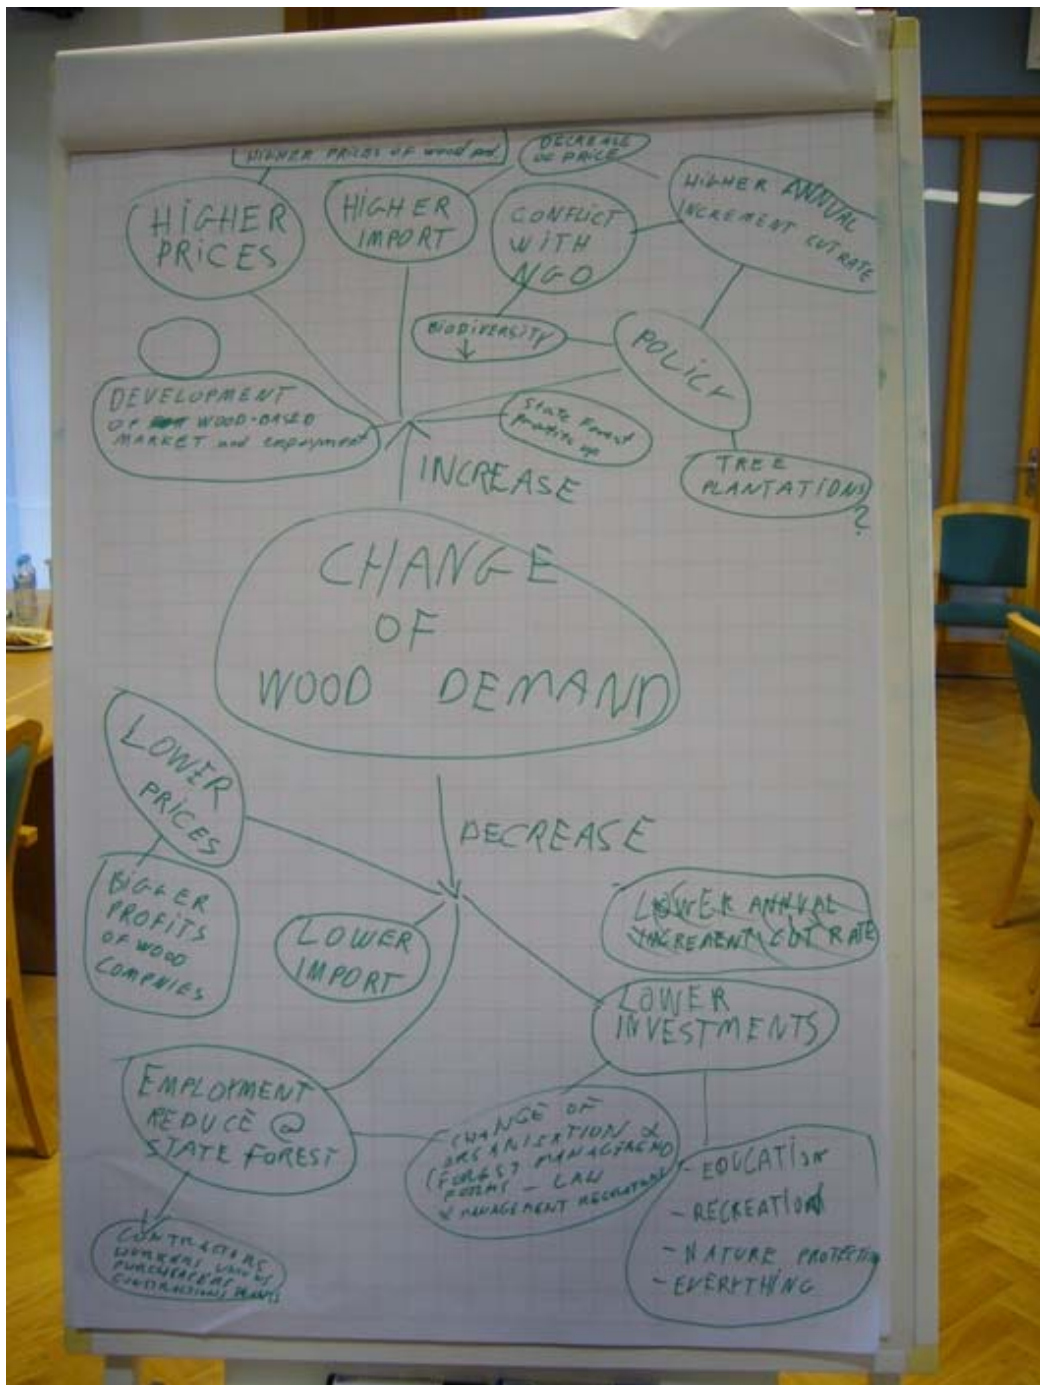 HIGHER PRICES OF wood prod
DECREASE
OF PRICE
HIGHER
PRICES
HIGHER
IMPORT
CONFLICT
WITH
NGO
HIGHER ANNUAL
INCREMENT CUT RATE
BIODIVERSITY
↓
POLICY
DEVELOPMENT
OF WOOD-BASED
MARKET and employment
State Forest
Profits up
TREE
PLANTATIONS
?
INCREASE
CHANGE
OF
WOOD DEMAND
LOWER
PRICES
DECREASE
BIGGER
PROFITS
OF WOOD
COMPNIES
LOWER
IMPORT
LOWER ANNUAL
INCREMENT CUT RATE
LOWER
INVESTMENTS
EMPLOYMENT
REDUCE @
STATE FOREST
CHANGE OF
ORGANISATION &
(FOREST MANAGEMEND
FORMS - LAW
& MANAGEMENT
- EDUCATION
- RECREATION
- NATURE PROTECTION
- EVERYTHING
CONTRACTORS
WORKERS UNIONS